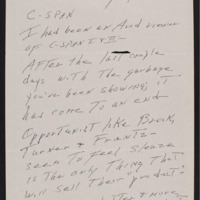 C-SPAN
I had been an Avid viewer
of C-SPAN I & II -
After the last couple
days with the garbage
you've been showing, it
has come to an end -
Opportunist like Brock,
Turner & Frantz -
seem to feel sleaze
is the only thing that
will sell their product.
& more